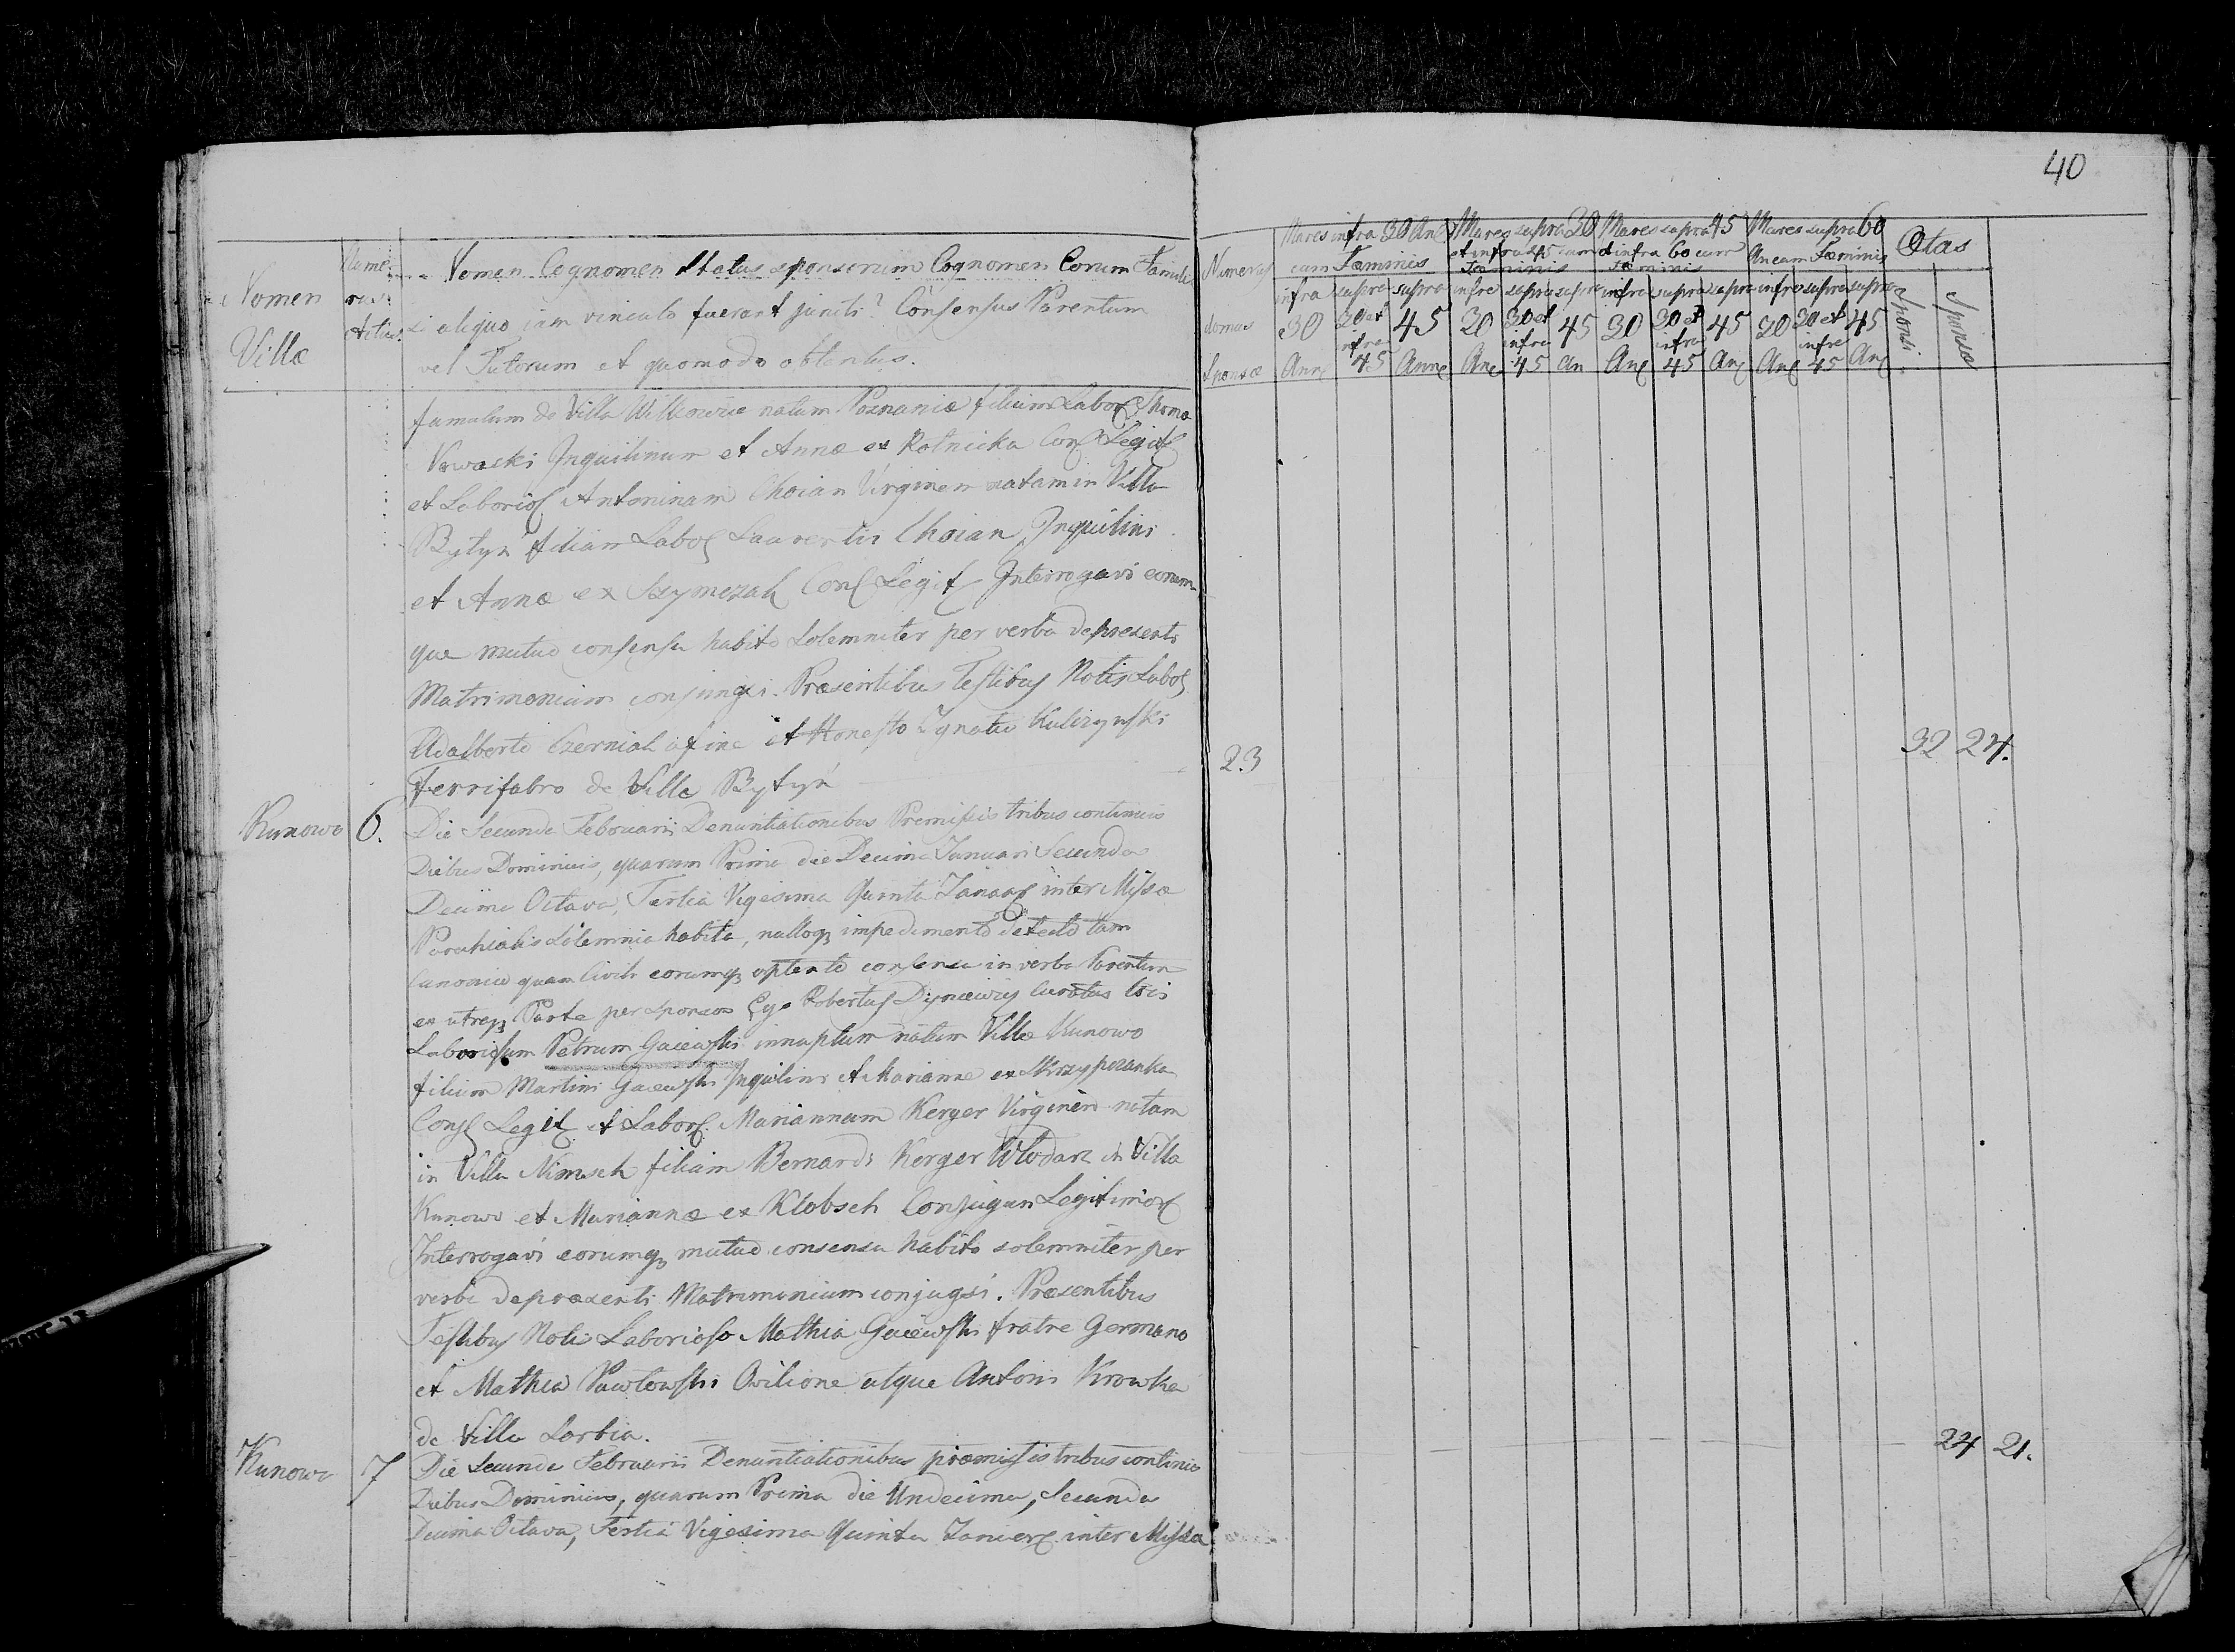 40
Nomen
Villæ
Nume-
rus
Actus
Nomen Cognomen Status sponsorum Cognomen Eorum Familiæ
si aliquo iam vinculo fuerant juncti? Consensus Parentum
vel Tutorum et quomodo obtentus.
Numerus
domus
Sponsæ
Mares infra 30 An
cum Fæminis
Mares supra 30
et infra 45 cum
Fæminis
Mares supra 45
et infra 60 cum
Fæminis
Mares supra 60
An cum Fæminis
Ætas
infra supra supra infra supra supra infra supra supra infra supra supra
30 30 et infra 45 45 30 30 et infra 45 45 30 30 et infra 45 45 30 30 et infra 45 45
Ann Ann An An An An An An
Sponsi
Sponsæ
famulum de Villa Wilkowice natum Posnaniæ filium Labor Thoma
Inquilinum et Annæ ex Rolnicka Conj Legit
et Laborios Antoninam Choian Virginem natam in Villa
Bytyń filiam Labor Laurentii Choian Inquilini
et Annæ ex Szymczak Conj Legit Interrogavi eorum-
que mutuo consensu habito Solemniter per verba de presenti
Matrimonium conjunxi. Præsentibus Testibus Notis Labor
Adalberto Czerniak afine et Honesto Ignatio Kulczynski
Ferrifabro de Villa Bytyń
23
32 24.
Kunowo
6.
Die Secunda Februarii Denuntiationibus Premissis tribus continuis
Diebus Dominicis, quarum Prima die Decima Januari Secunda
Decima Octava, Tertia Vigesima Quinta Januar inter Missæ
Parochialis Solemnia habita, nulloq impedimento detecto tam
Canonico quam Civili eorumq optento consensu in verba Parentum
ex utraq Parte per Sponsos Ego Robertus Curatus
Laboriosum Petrum Gaiewski innuptum natum Villæ Kunowo
filium Martini Gaiewski Inquilini et Mariannæ ex Skrzypczanka
Conj Legit et Labor. Mariannam Kerger Virginem natam
in Villa Nimsch filiam Bernardi Kerger Wlodarz in Villa
Kunowo et Mariannæ ex Klobsch Conjugum Legitimor
Interrogavi eorumq mutuo consensu habito solemniter per
verba de præsenti Matrimonium conjugsi. Præsentibus
Testibus Notis Laborioso Mathia Gaiewski fratre Germano
et Mathia Pawlowski Ovilione atque Antoni Krowka
de Villa
24 21.
Kunowo
7
Die Secunda Februarii Denuntiationibus præmissis tribus continuis
Diebus Dominicis, quarum Prima die Undecima, Secunda
Decima Octava, Tertia Vigesima Quinta Januar inter Missæ